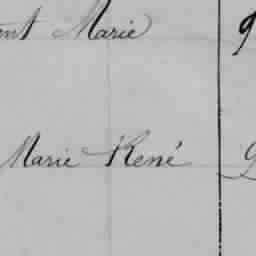 ent Marie 9
Marie René